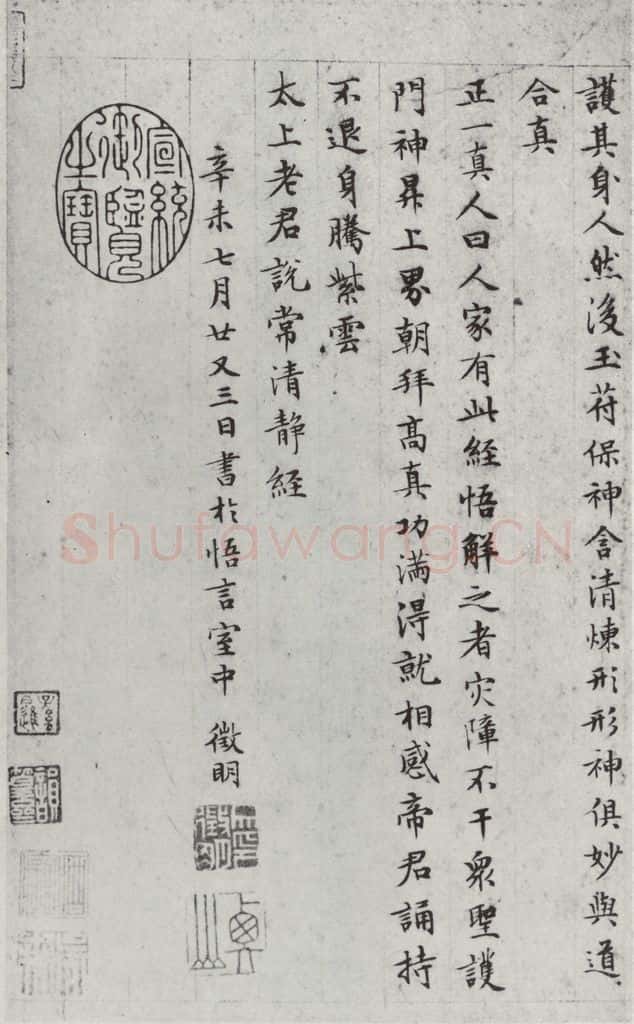 護其身人然後玉苻保神含清煉形形神俱妙與道
合真
正一真人曰人家有此經悟解之者灾障不干衆聖護
門神昇上界朝拜高真功滿得就相感帝君誦持
不退身騰紫雲
太上老君說常清静經
辛未七月廿又三日書於悟言室中 徵明
宣統御覽之寶
Shufawang.CN